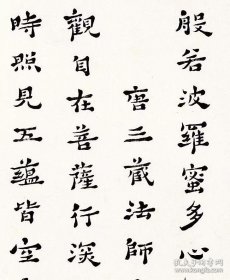 般若波羅蜜多心
唐三藏法師
觀自在菩薩行深
時照見五蘊皆空